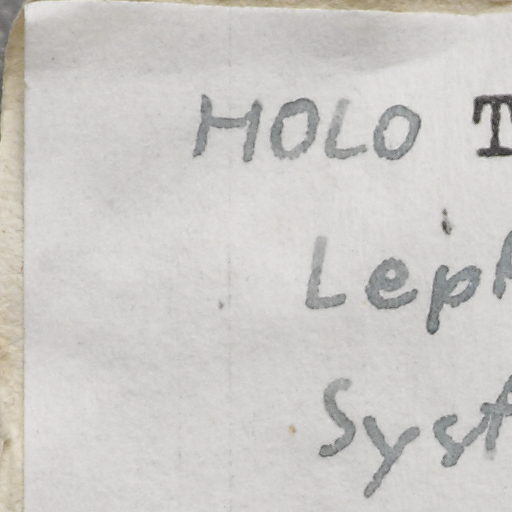 HOLO T
Lep
Syst